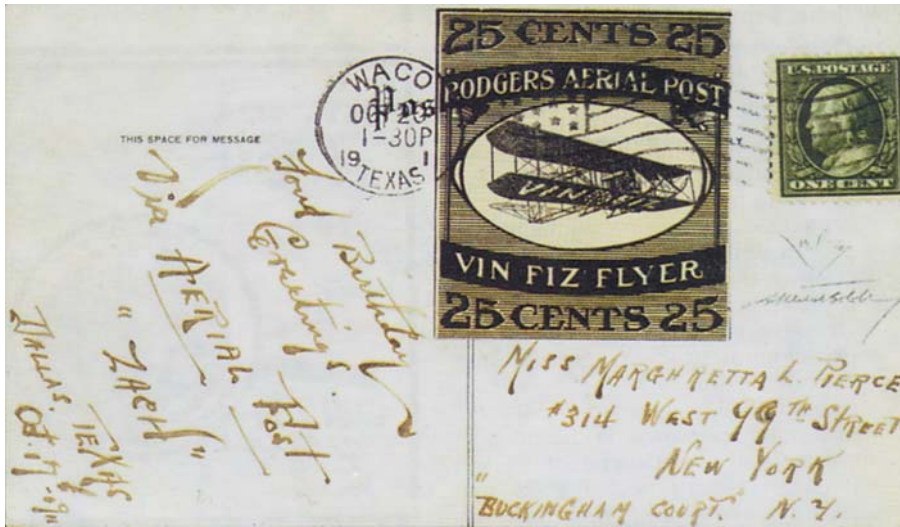 25 CENTS 25
RODGERS AERIAL POST
VIN FIZ
VIN FIZ FLYER
25 CENTS 25
WACO
OCT 20
1-30P
19 1
TEXAS
U.S. POSTAGE
ONE CENT
THIS SPACE FOR MESSAGE
Fond Birthday
Greetings.
Via AERIAL Post
"ZACH"
DALLAS. TEXAS
Oct. 19-09"
MISS MARGHRETTA L. PIERCE
#314 WEST 99TH STREET
NEW YORK
"BUCKINGHAM COURT." N.Y.